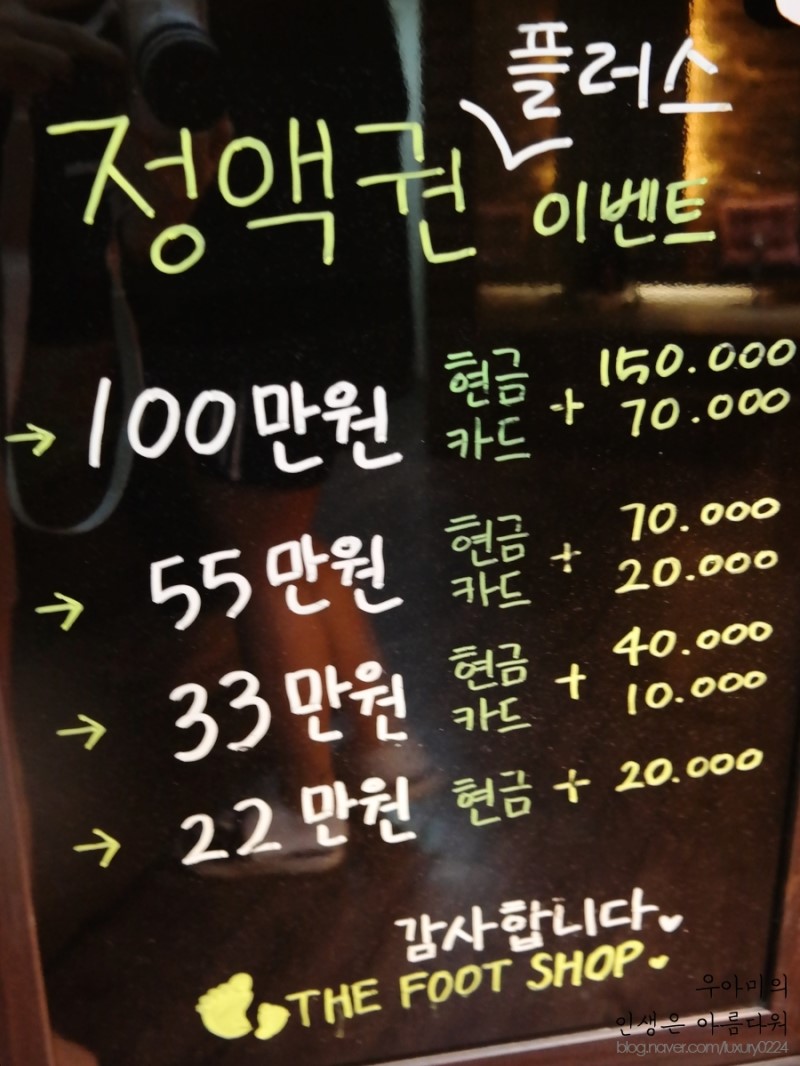 플러스
정액권 이벤트
→ 100만원 현금 + 150.000
카드 70.000
→ 55만원 현금 + 70.000
카드 20.000
→ 33만원 현금 + 40.000
카드 10.000
→ 22만원 현금 + 20.000
감사합니다♥
THE FOOT SHOP♥
우아미의
인생은 아름다워
blog.naver.com/luxury0224